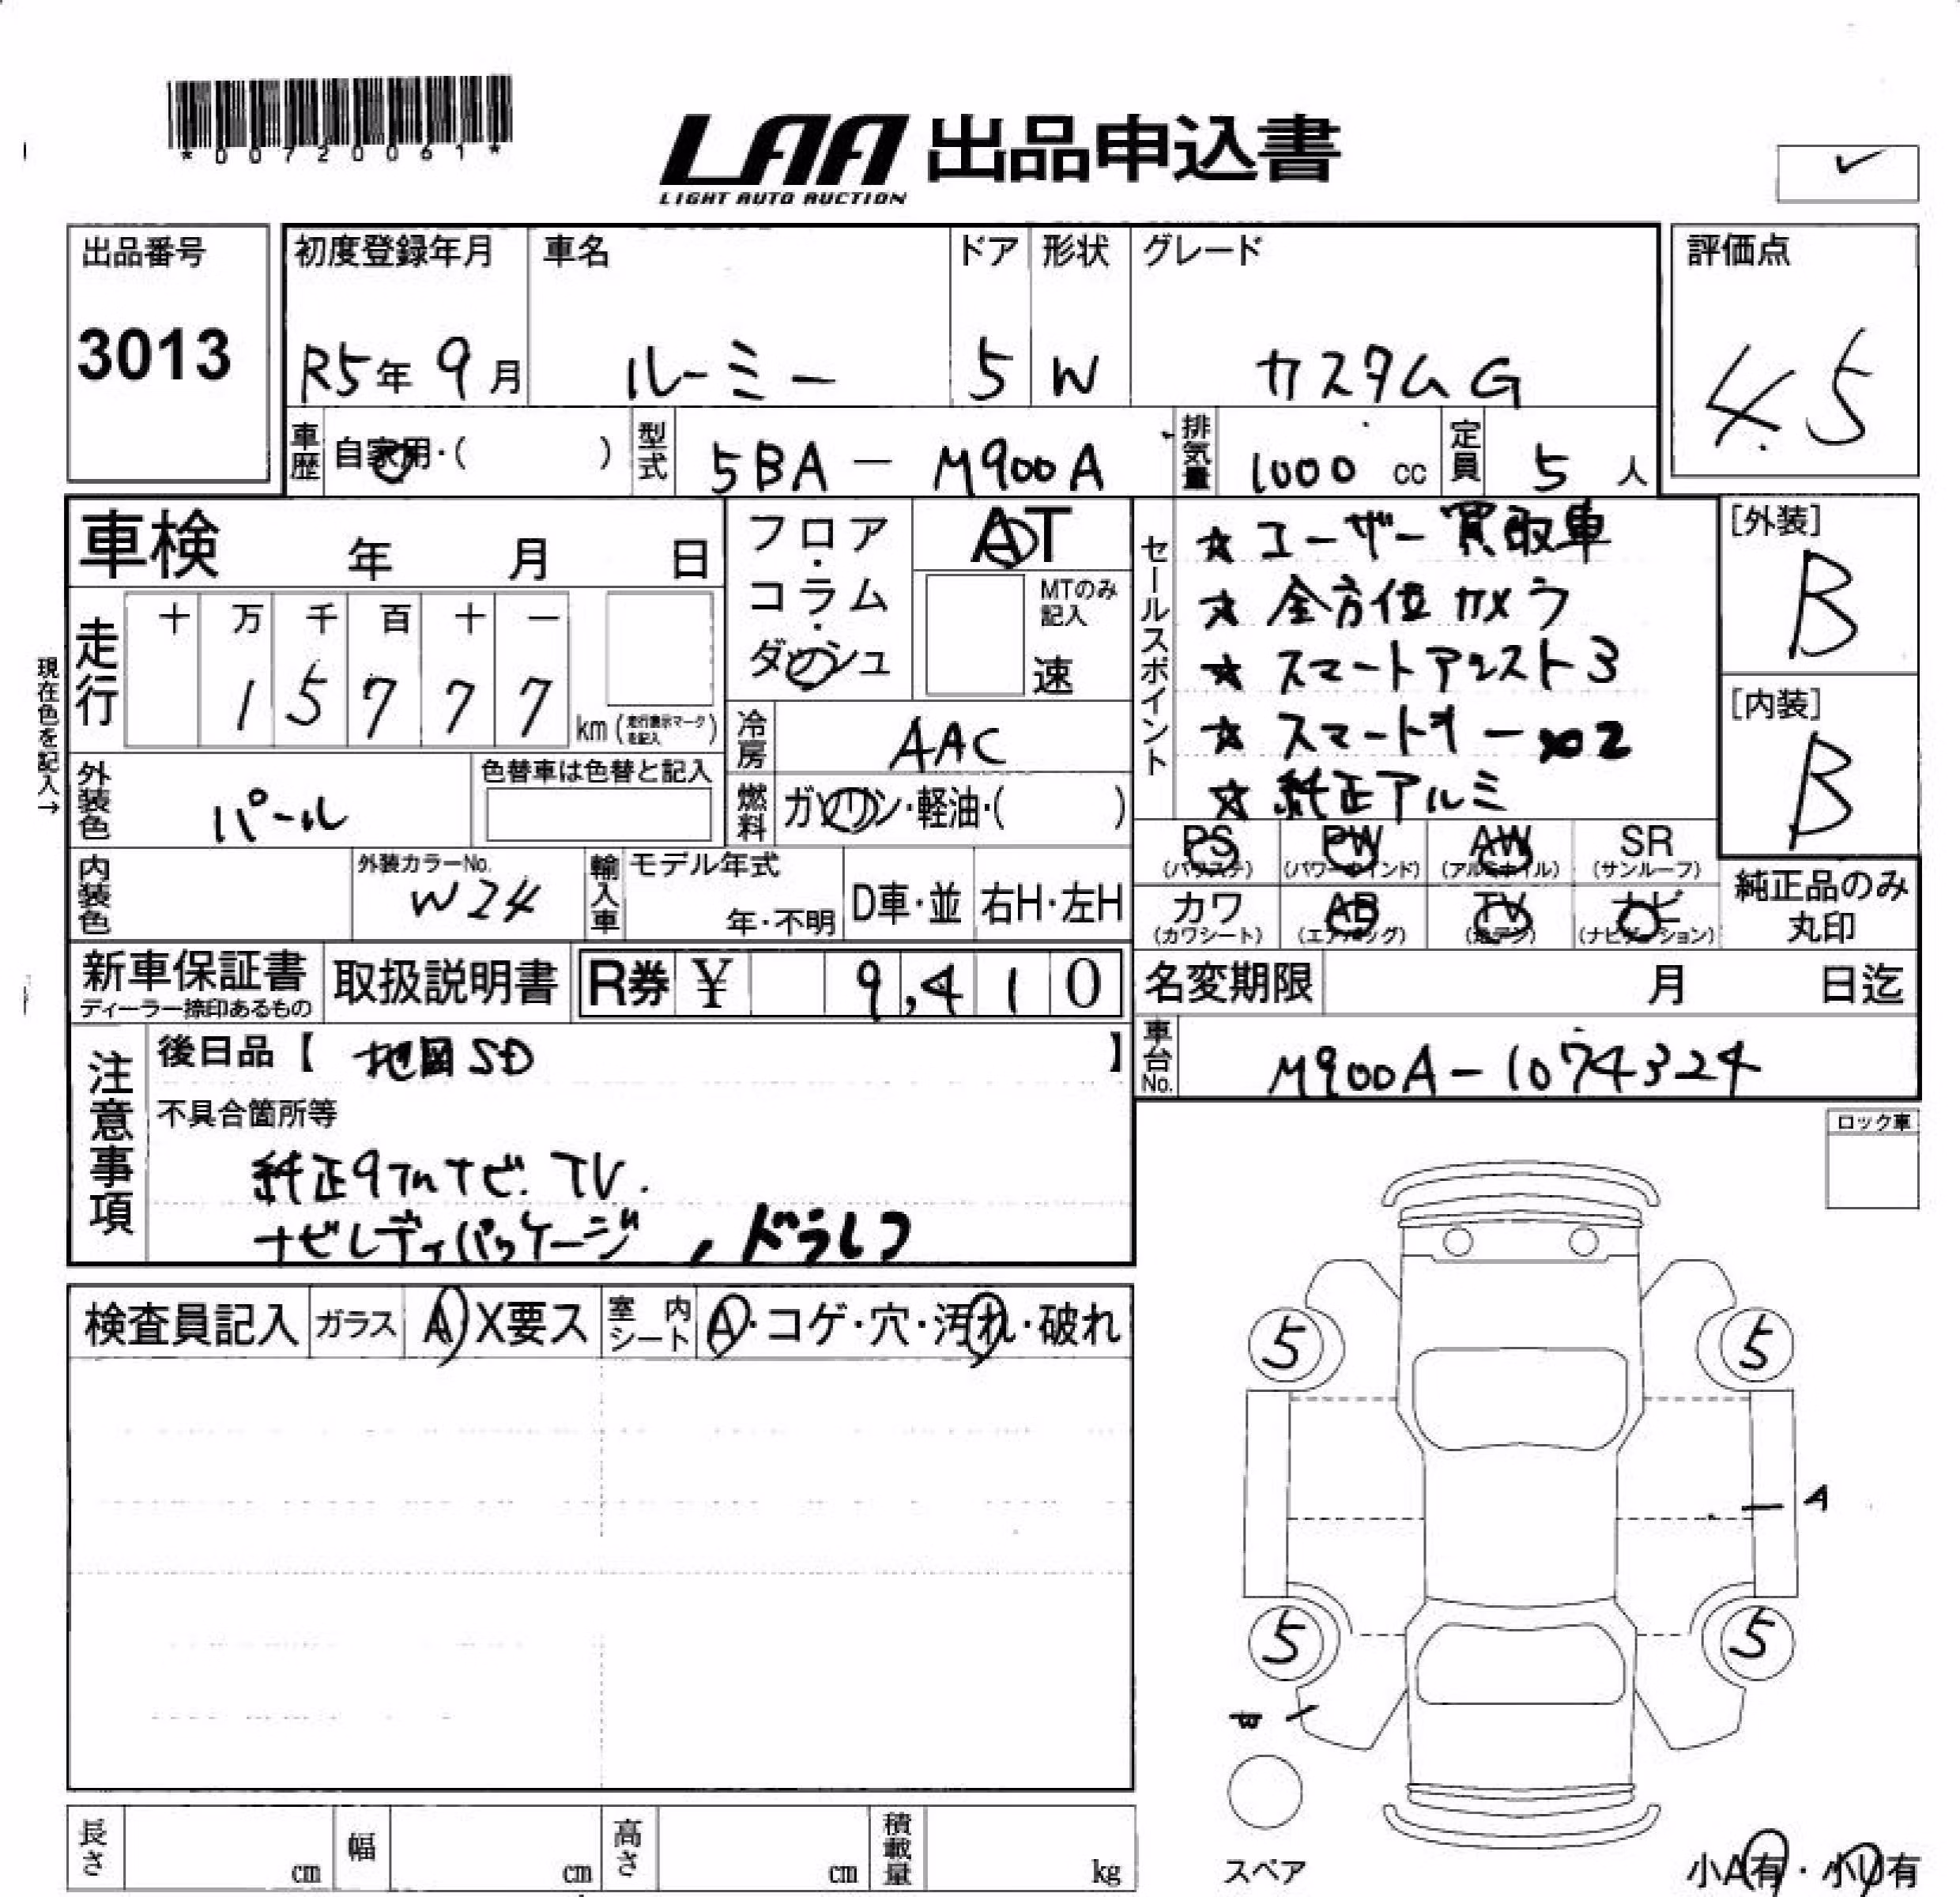 *00720061*
LAA 出品申込書
LIGHT AUTO AUCTION
出品番号
3013
初度登録年月
R5年 9月
車名
ルーミー
ドア
5
形状
W
グレード
カスタムG
評価点
4.5
車歴 自家用・( )
型式 5BA - M900A
排気量 1000 cc
定員 5 人
車検 年 月 日
フロア・コラム・ダッシュ
AT
MTのみ記入
速
セールスポイント
☆ユーザー買取車
☆全方位カメラ
☆スマートアシスト3
☆スマートキーx2
☆純正アルミ
[外装]
B
[内装]
B
現在色を記入→
走行
十 万 千 百 十 一
1 5 7 7 7
km (走行表示マークを記入)
冷房 AAC
外装色 パール
色替車は色替と記入
燃料 ガソリン・軽油・( )
PS (パワステ) PW (パワーウインド) AW (アルミホイル) SR (サンルーフ)
カワ (カワシート) AB (エアバッグ) TV (地デジ) ナビ (ナビゲーション)
純正品のみ丸印
内装色
外装カラーNo.
W24
輸入車
モデル年式
年・不明
D車・並
右H・左H
新車保証書
ディーラー捺印あるもの
取扱説明書
R券 ¥ 9,410
名変期限 月 日迄
車台No. M900A-1074324
注意事項
後日品【 地図SD 】
不具合箇所等
純正9インナビ.TV.
ナビレディパッケージ , ドラレコ
ロック車
検査員記入 ガラス A X要ス
室内シート A・コゲ・穴・汚れ・破れ
5 5
A
5 5
W
スペア
小A有・小U有
長さ cm
幅 cm
高さ cm
積載量 kg